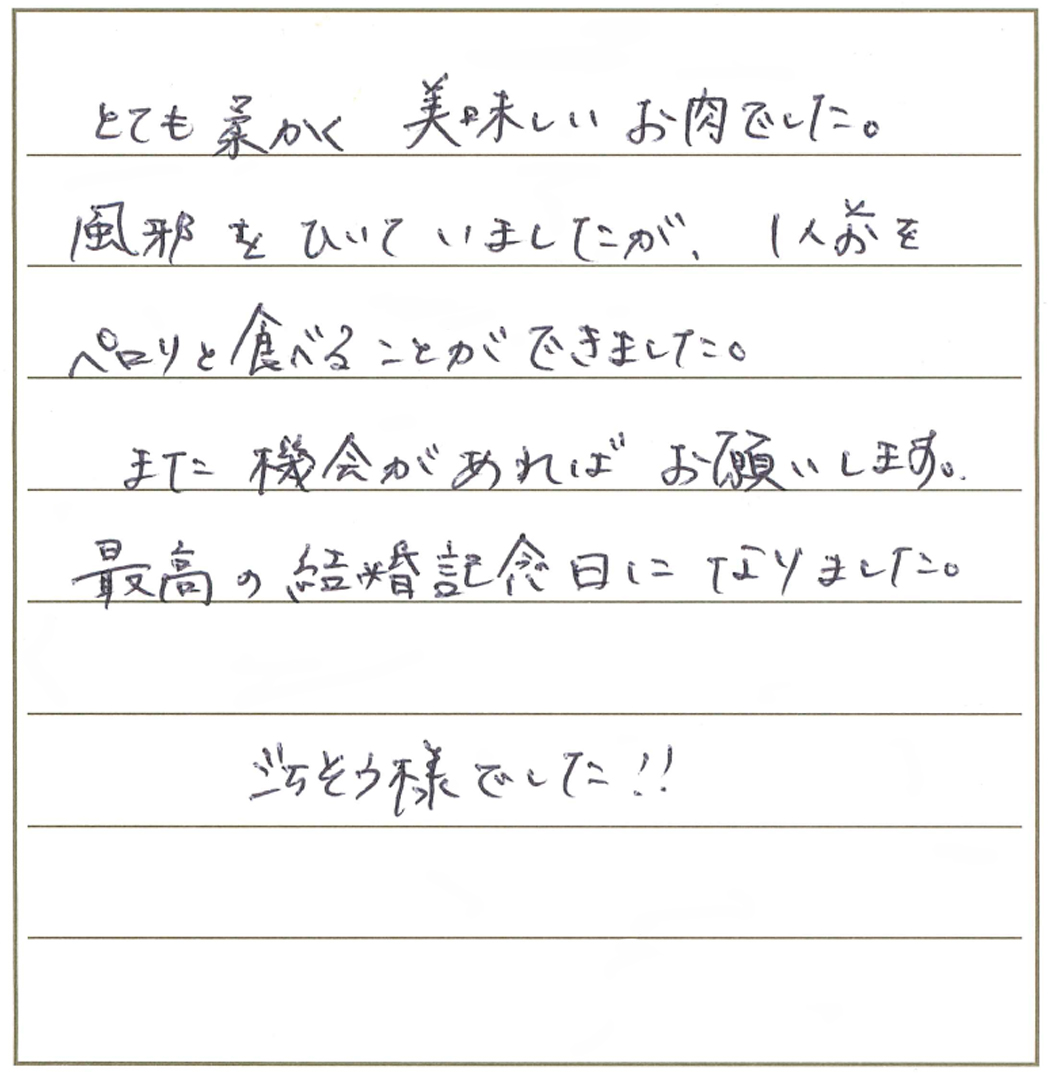 とても柔かく 美味しい お肉でした。
風邪をひいていましたが、1人前を
ペロリと食べることができました。
また機会があればお願いします。
最高の結婚記念日になりました。
ごちそう様でした!!